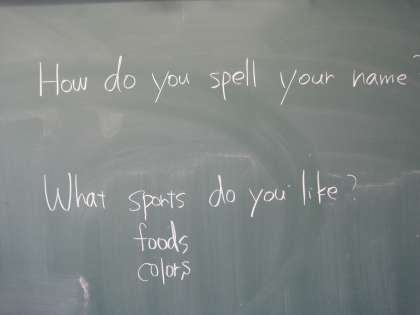 How do you spell your name?
What sports do you like?
foods
colors